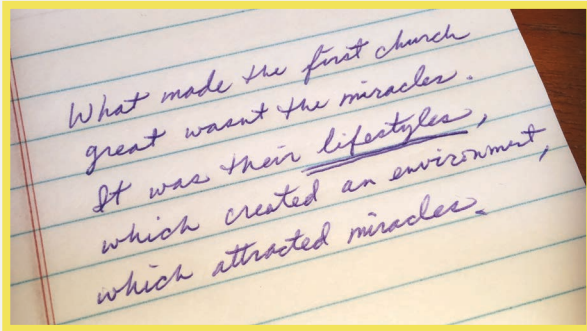 What made the first church
great wasnt the miracles.
It was their lifestyles,
which created an environment,
which attracted miracles.